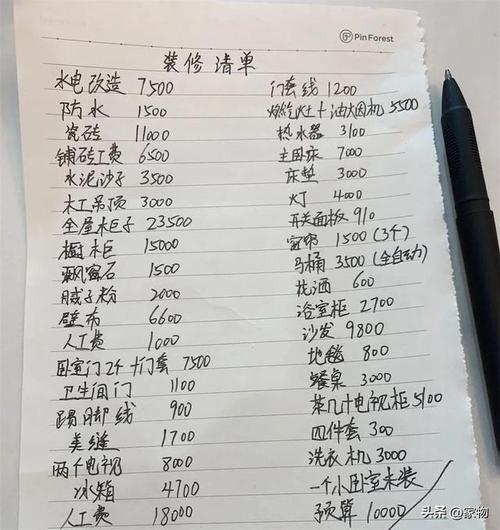 PinForest
装修清单
水电改造 7500
防水 1500
瓷砖 11000
铺砖工费 6500
水泥沙子 3500
木工吊顶 3000
全屋木柜子 23500
橱柜 15000
飘窗石 1500
腻子粉 2000
壁布 6600
人工费 1000
卧室门2个+门套 7500
卫生间门 1100
踢脚线 900
美缝 1700
两个电视 8000
冰箱 4700
人工费 18000
门套线 1200
燃气灶+油烟机 5500
热水器 3100
主卧床 7000
床垫 3000
灯 4000
开关面板 910
窗帘 1500(3个)
马桶 3500(全自动)
花洒 600
浴室柜 2700
沙发 9800
地毯 800
餐桌 3000
茶几+电视柜 5100
四件套 300
洗衣机 3000
一个小卧室未装
预算 10000
头条@家物